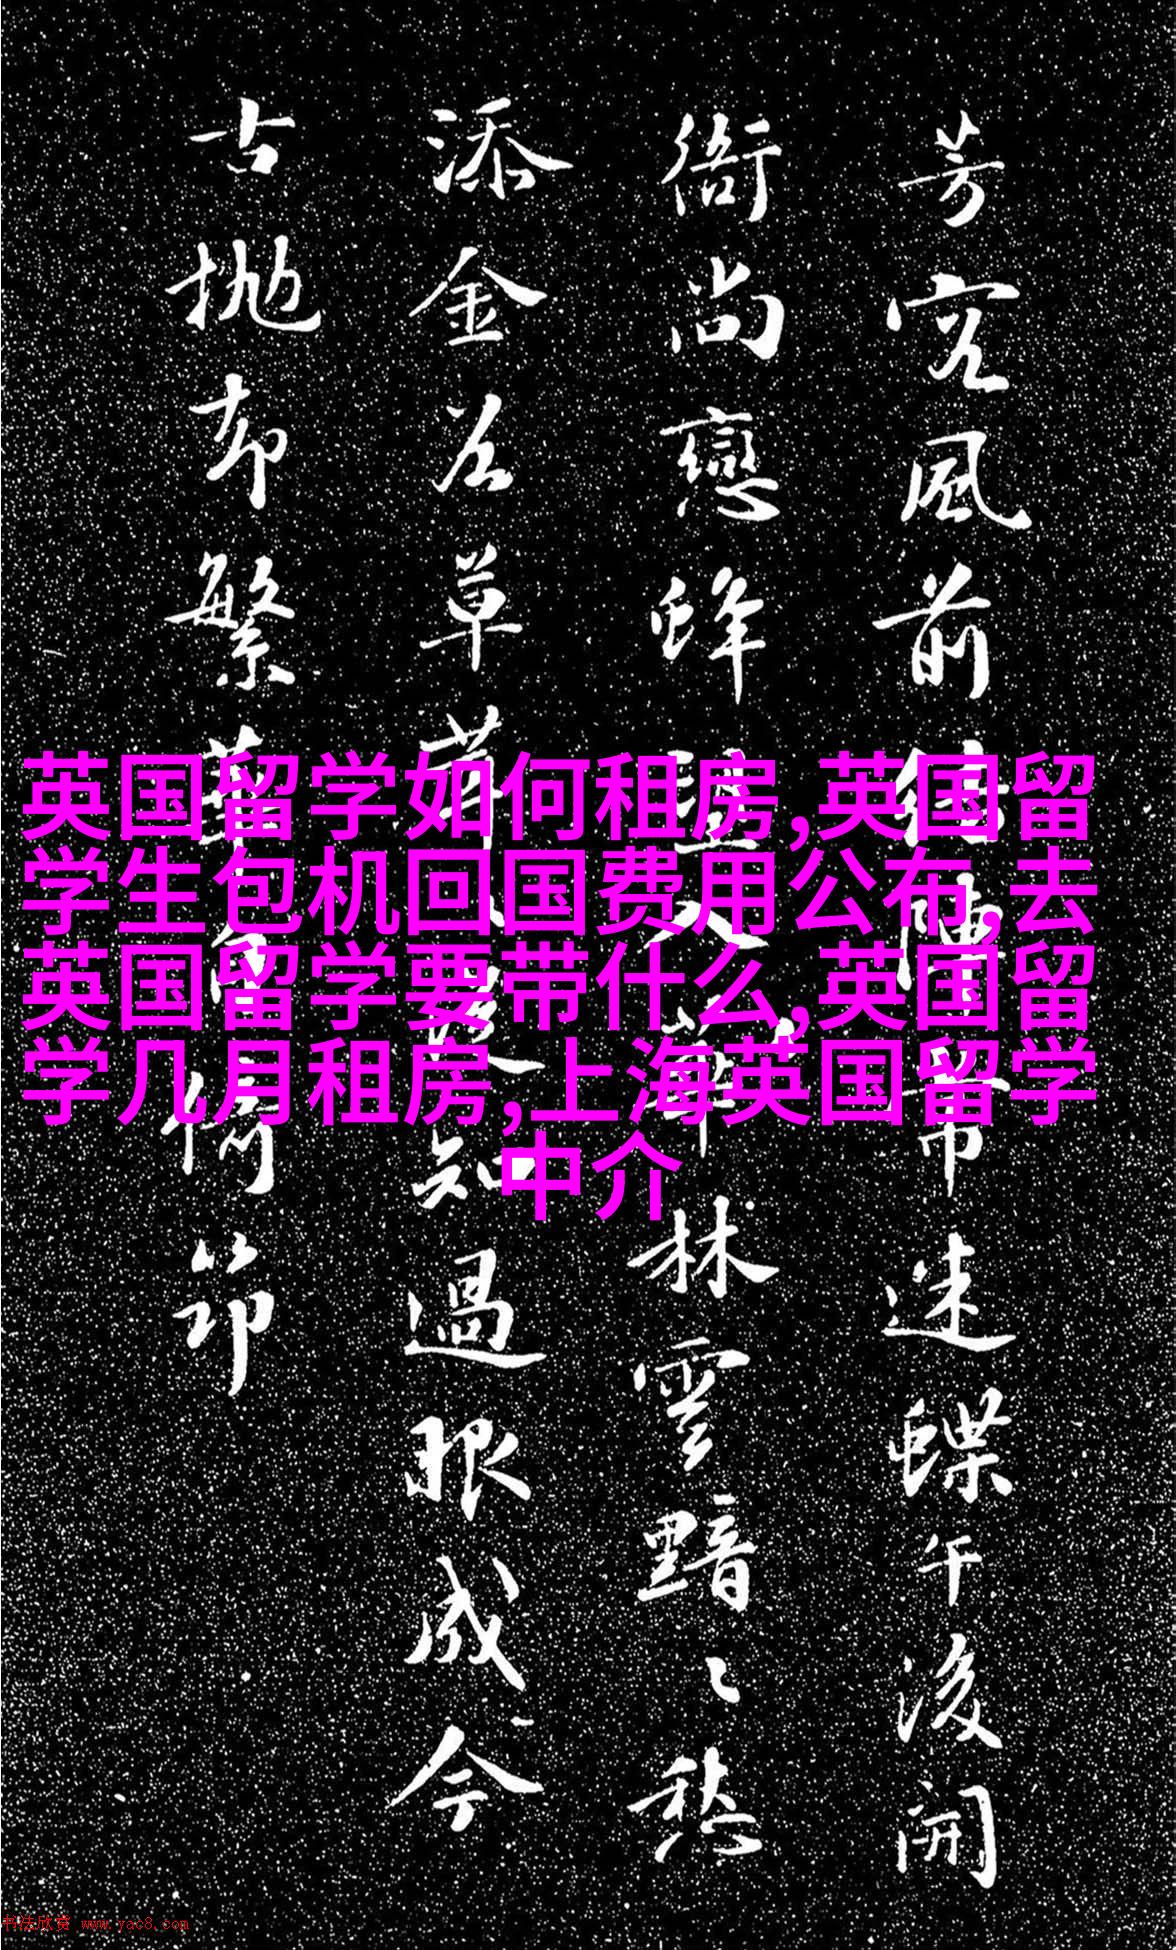 芳容風前結隊
迷蝶午後開
衙尚戀蜂
入
林雲黯〻愁
添金谷草
知過眼成今
古抛却繁華
倚節
英国留学如何租房,英国留
学生包机回国费用公布,去
英国留学要带什么,英国留
学几月租房,上海英国留学
中介
书法欣赏 www.yac8.com